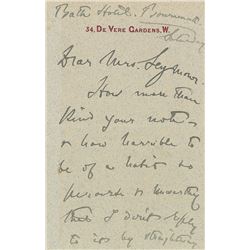 Bath Hotel, Bournemouth
34, DE VERE GARDENS, W.
Dear Mrs. Seymour.
How more than
kind your note &
how horrible to
be of a habit so
& unworthy
that I don't reply
to it by